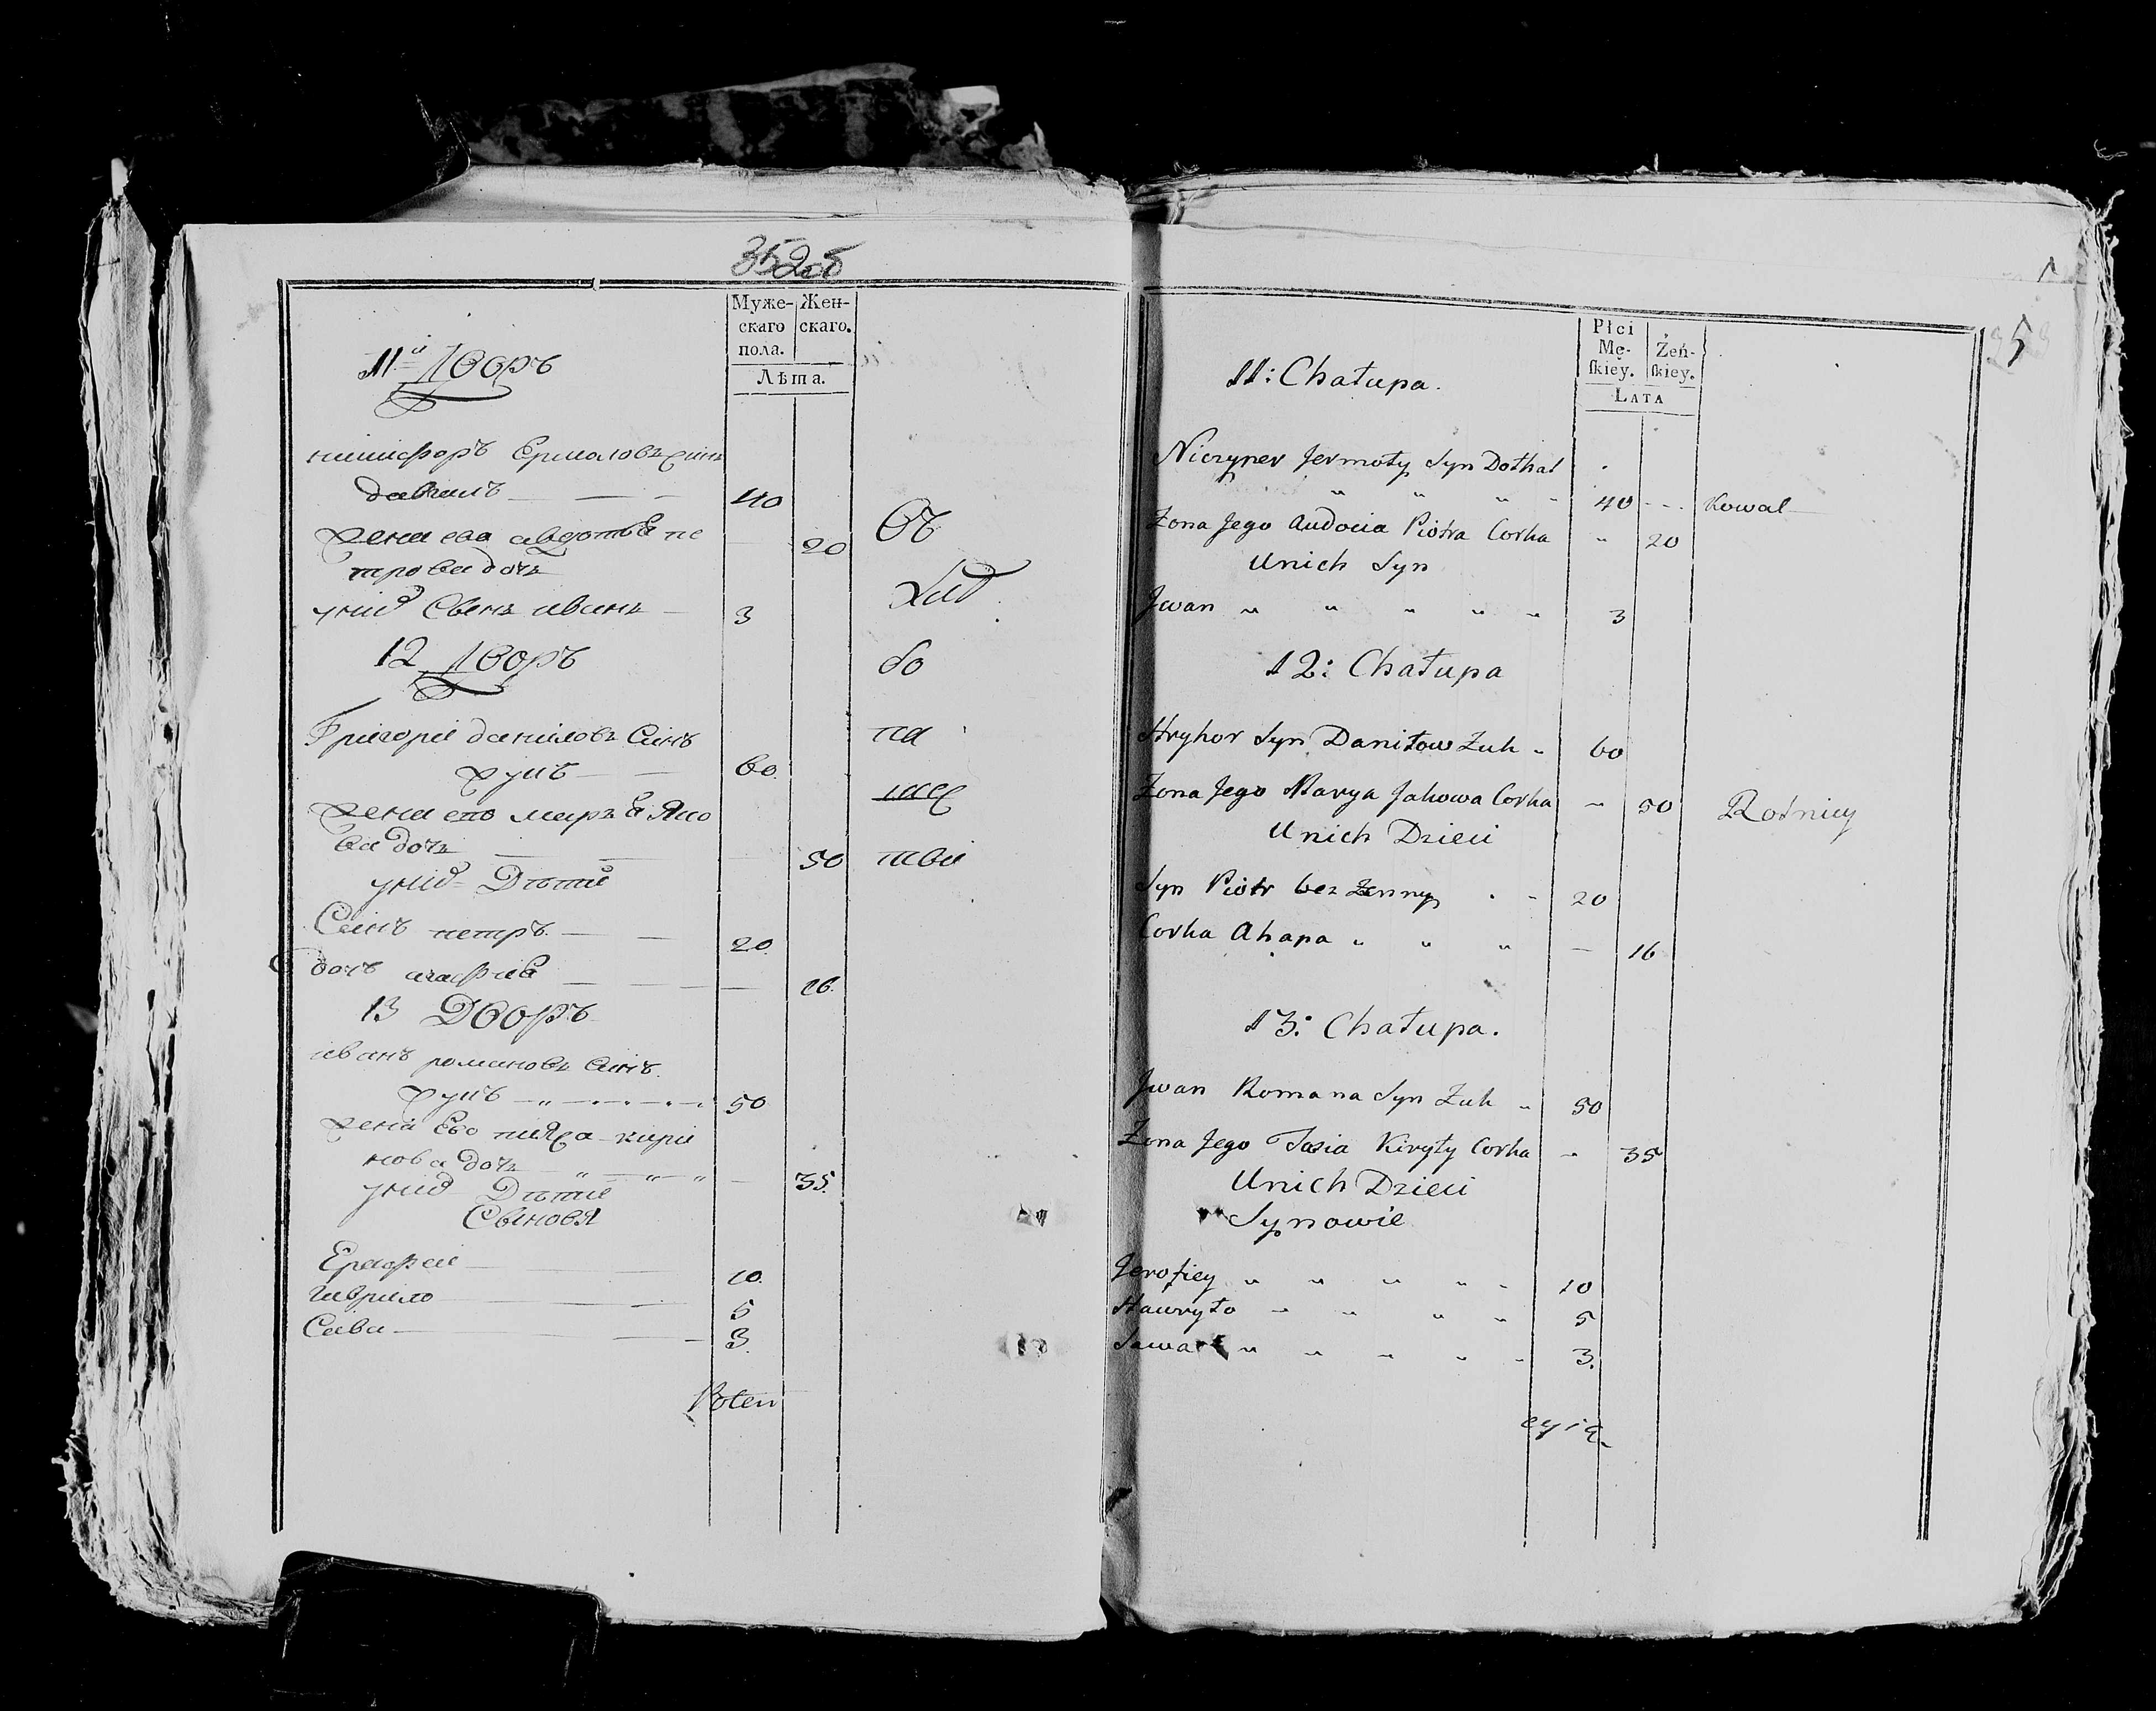 352об
Муже-
скаго
пола.
Жен-
скаго.
Лѣта.
11й Дворъ
никифоръ Ермоловъ Синъ
40
жена его авдотья пе
20
трова дочъ
уних Сынъ иванъ 3
12 Дворъ
Григорие данилов Синъ
жукъ 60
жена его маръя Яко
ва дочъ 50
уних Дѣти
Синъ петръ 20
дочъ агафия 16
13 Дворъ
иванъ романовъ Синъ
жукъ 50
жена Ево кири
лова дочъ 35
уних Дѣти
Сыновя
Ерофеи 10
гаврило 5
Сава 3
Въ
хлѣ
бо
па
ше
ствѣ
Poten
5
Płci
Mę-
ſkiey.
Żeń-
ſkiey.
LATA
11: Chałupa.
Niczyper Jermoły Syn
40 Kowal
Zona Jego Audocia Piotra Corka " 20
Unich Syn
Jwan " " " " " 3
12: Chałupa
Hryhor Syn Daniłow Zuk " 60
Zona Jego Marya Jakowa Corka " 50 Rolnicy
Unich Dzieci
Syn Piotr bez Zenny 20
Corka Ahapa " " " – 16
13: Chałupa.
Jwan Romana Syn Zuk " 50
Zona Jego Tasia Kiryły Corka " 35
Unich Dzieci
Synowie
Jerofiey " " " " " 10
Hawryło " " " " 5
Sawa " " " " " 3.
cyią